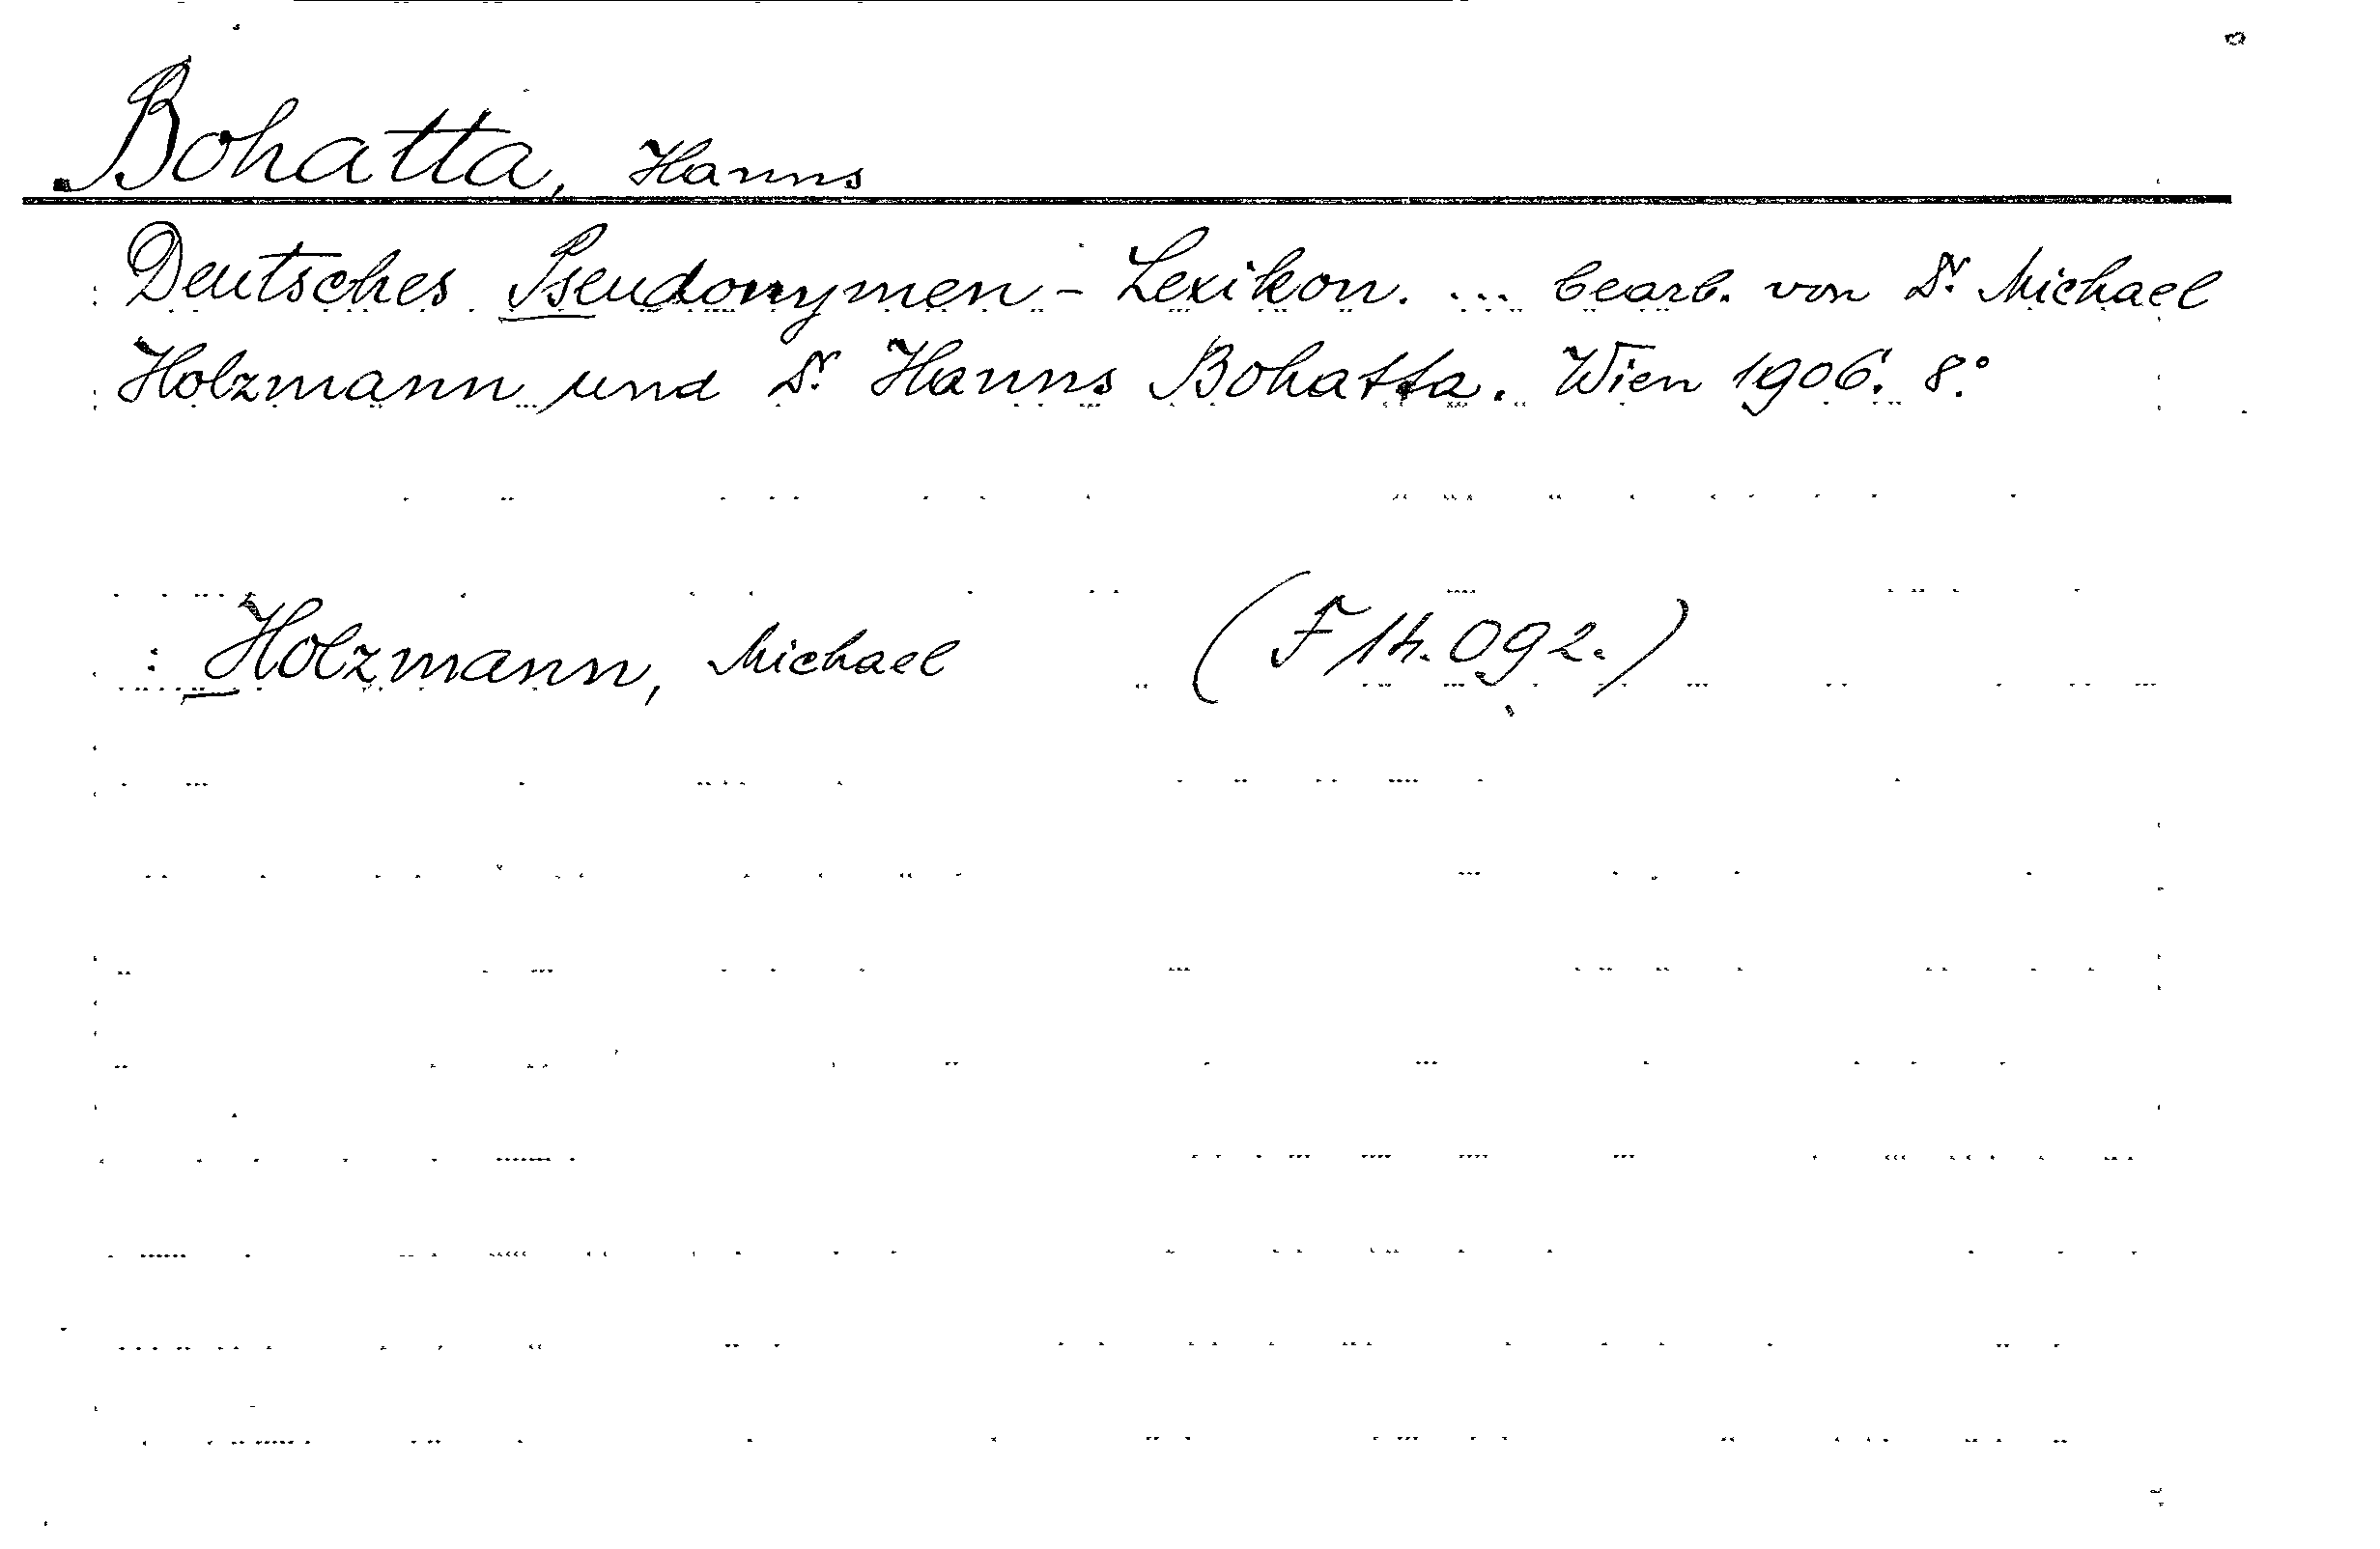 Bohatta, Hanns
Deutsches Pseudonymen-Lexikon. ... bearb. von Dr. Michael
Holzmann und Dr. Hanns Bohatta. Wien 1906. 8.°
: Holzmann, Michael (F 14.092.)